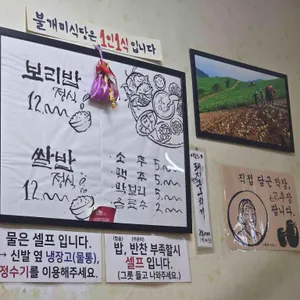 불개미식당은 1인1식 입니다
보리밥
정식
12,000
쌀밥
정식
12,000
소주 5,000
맥주 5,000
음료수 2,000
물은 셀프 입니다.
→ 신발 옆 냉장고(물통),
정수기를 이용해주세요.
밥, 반찬 부족할시
셀프 입니다.
(그릇 들고 나와주세요.)
직접 담근 된장,